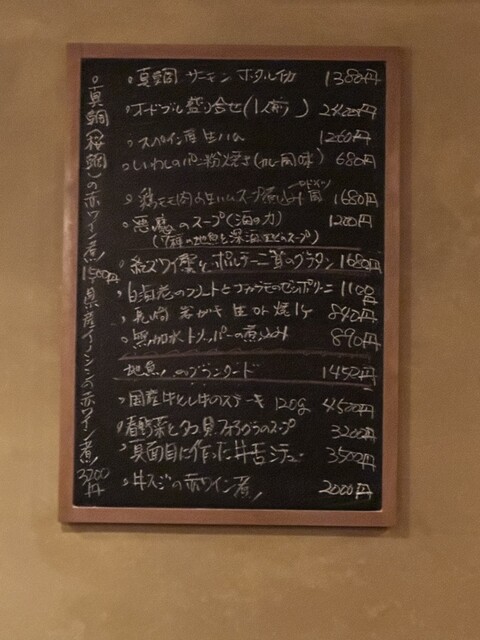 真鯛 サーモン ホタルイカ 1380円
オードブル盛り合せ(1人前) 2400円
スペイン産生ハム 1200円
いわしのパン粉焼き(カレー風味) 680円
鶏モモ肉と生ハムのスープ煮込み 風 1680円
悪魔のスープ(海の力) 1200円
(7種の地魚と深海 のスープ)
紅ズワイ蟹とポルチーニ茸のグラタン 1680円
白 のフリットと の 1100円
長崎 岩がき 生or焼 1ケ 840円
無加水トリッパーの煮込み 890円
地魚 のブランダード 1450円
国産牛ヒレ肉のステーキ 120g 4500円
春野菜と 貝 のスープ 3200円
真面目に作った牛舌シチュー 3500円
牛スジの赤ワイン煮 2000円
真鯛(桜鯛)の赤ワイン煮 1500円
県産イノシシの赤ワイン煮 3200円